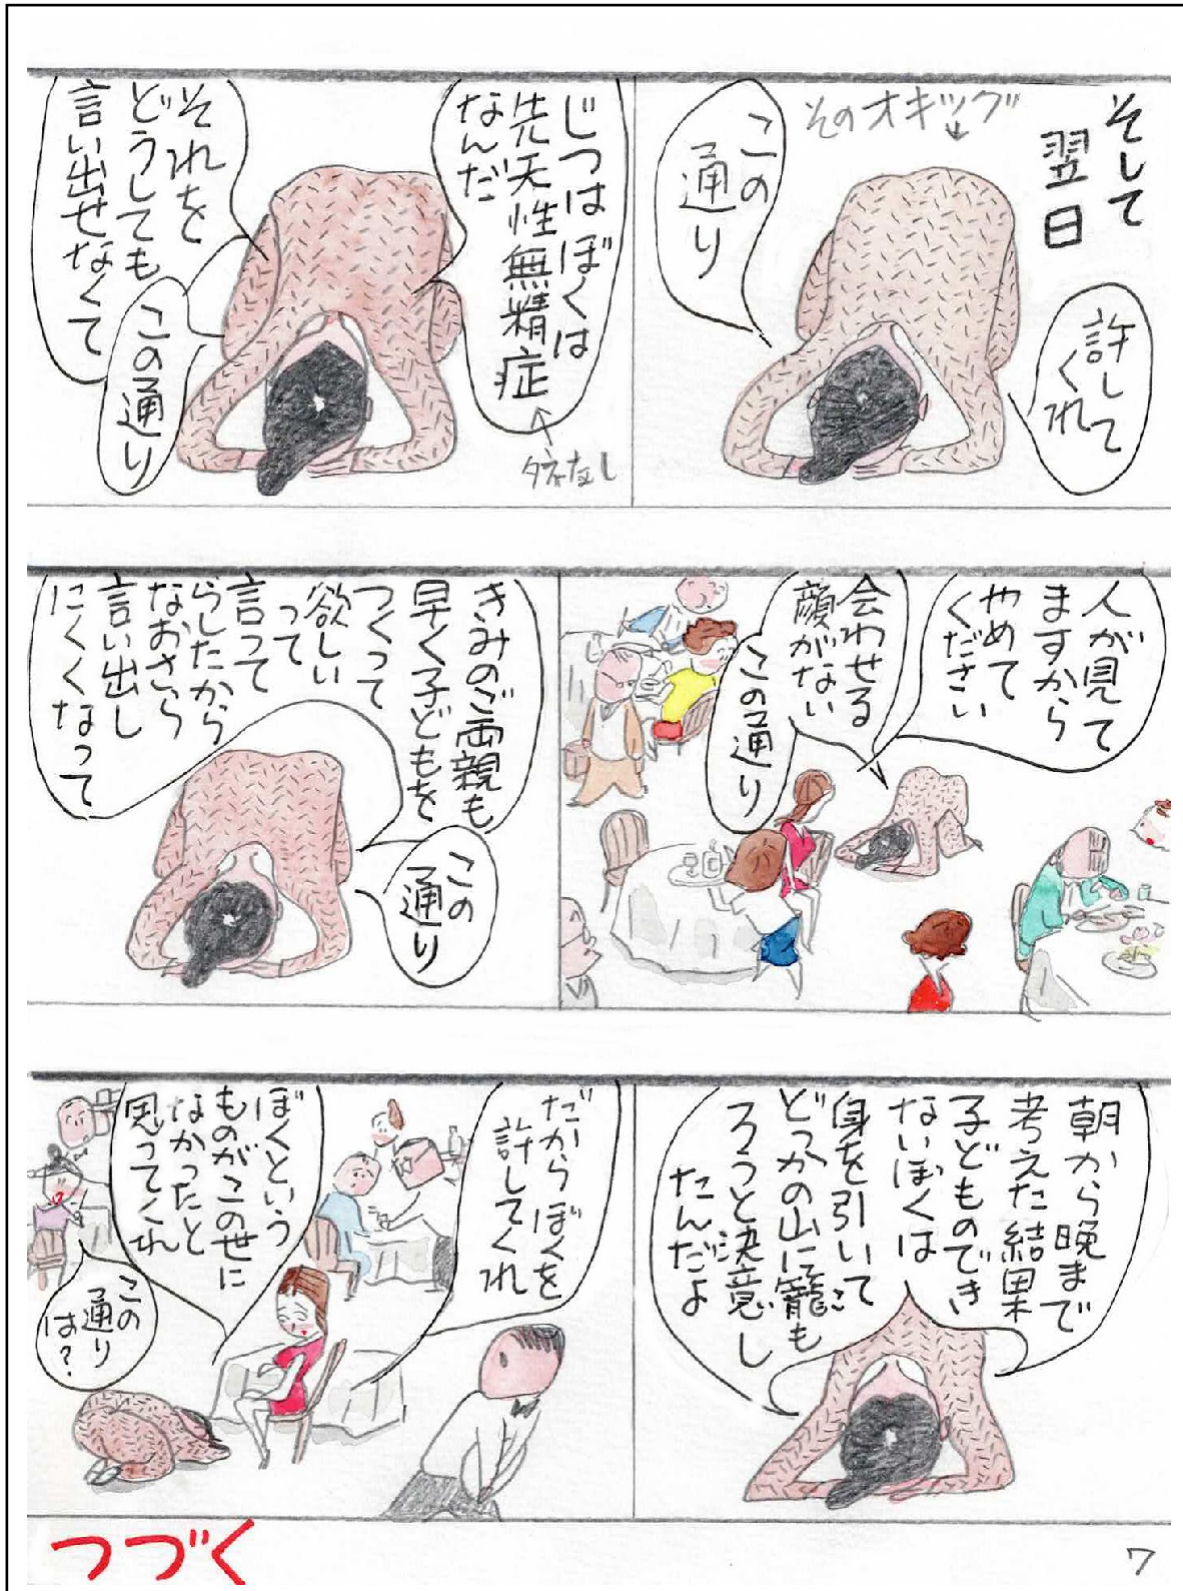 そして
翌日
そのオキッグ
許して
くれ
この
通り
じつはぼくは
先天性無精症
なんだ
タネなし
それを
どうしても
言い出せなくて
この通り
人が見て
ますから
やめて
ください
会わせる
顔がない
この通り
きみのご両親も
早く子どもを
つくって
欲しい
って
言って
らしたから
なおさら
言い出し
にくくなって
この
通り
朝から晩まで
考えた結果
子どものでき
ないぼくは
身を引いて
どっかの山に籠も
ろうと決意し
たんだよ
だからぼくを
許してくれ
ぼくという
ものがこの世に
なかったと
思ってくれ
この
通り
は?
つづく
7